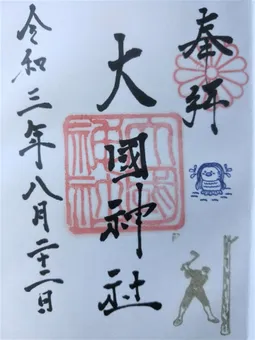 奉拝
大國神社
令和三年八月二十二日